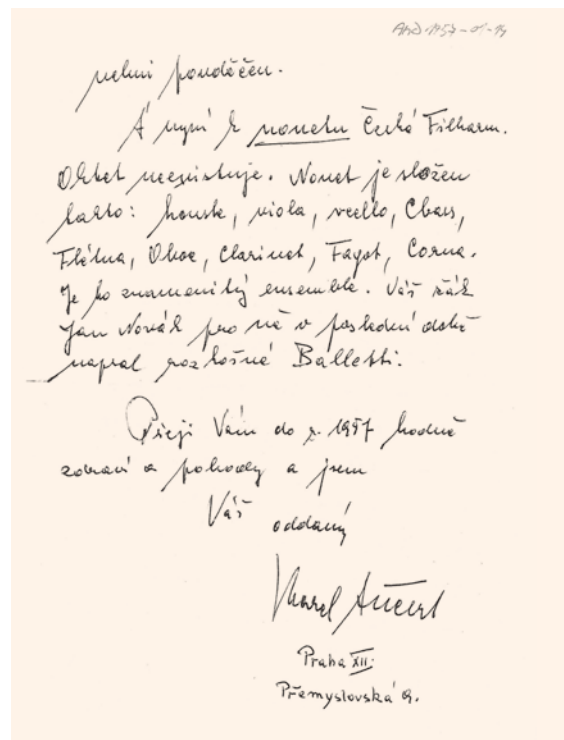 AnČ 1957-01-14
velmi povděčen.
A nyní k nonetu České Filharm.
Oktet neexistuje. Nonet je složen
takto: housle, viola, vcello, Cbass,
Flétna, Oboe, Clarinet, Fagot, Corna.
Je to znamenitý ensemble. Váš žák
Jan Novák pro ně v poslední době
napsal rozkošné Balletti.
Přeji Vám do r. 1957 hodně
zdraví a pohody a jsem
Váš oddaný
Karel Ančerl
Praha XII.
Přemyslovská 9.